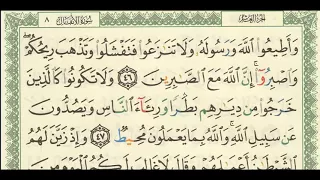 الجزء العاشر سورة الأنفال ٨
وَأَطِيعُوا۟ ٱللَّهَ وَرَسُولَهُۥ وَلَا تَنَـٰزَعُوا۟ فَتَفْشَلُوا۟ وَتَذْهَبَ رِيحُكُمْ ۖ
وَٱصْبِرُوٓا۟ ۚ إِنَّ ٱللَّهَ مَعَ ٱلصَّـٰبِرِينَ ٤٦ وَلَا تَكُونُوا۟ كَٱلَّذِينَ
خَرَجُوا۟ مِن دِيَـٰرِهِم بَطَرًا وَرِئَآءَ ٱلنَّاسِ وَيَصُدُّونَ
عَن سَبِيلِ ٱللَّهِ ۚ وَٱللَّهُ بِمَا يَعْمَلُونَ مُحِيطٌ ٤٧ وَإِذْ زَيَّنَ لَهُمُ
ٱلشَّيْطَـٰنُ أَعْمَـٰلَهُمْ وَقَالَ لَا غَالِبَ لَكُمُ ٱلْيَوْمَ مِنَ